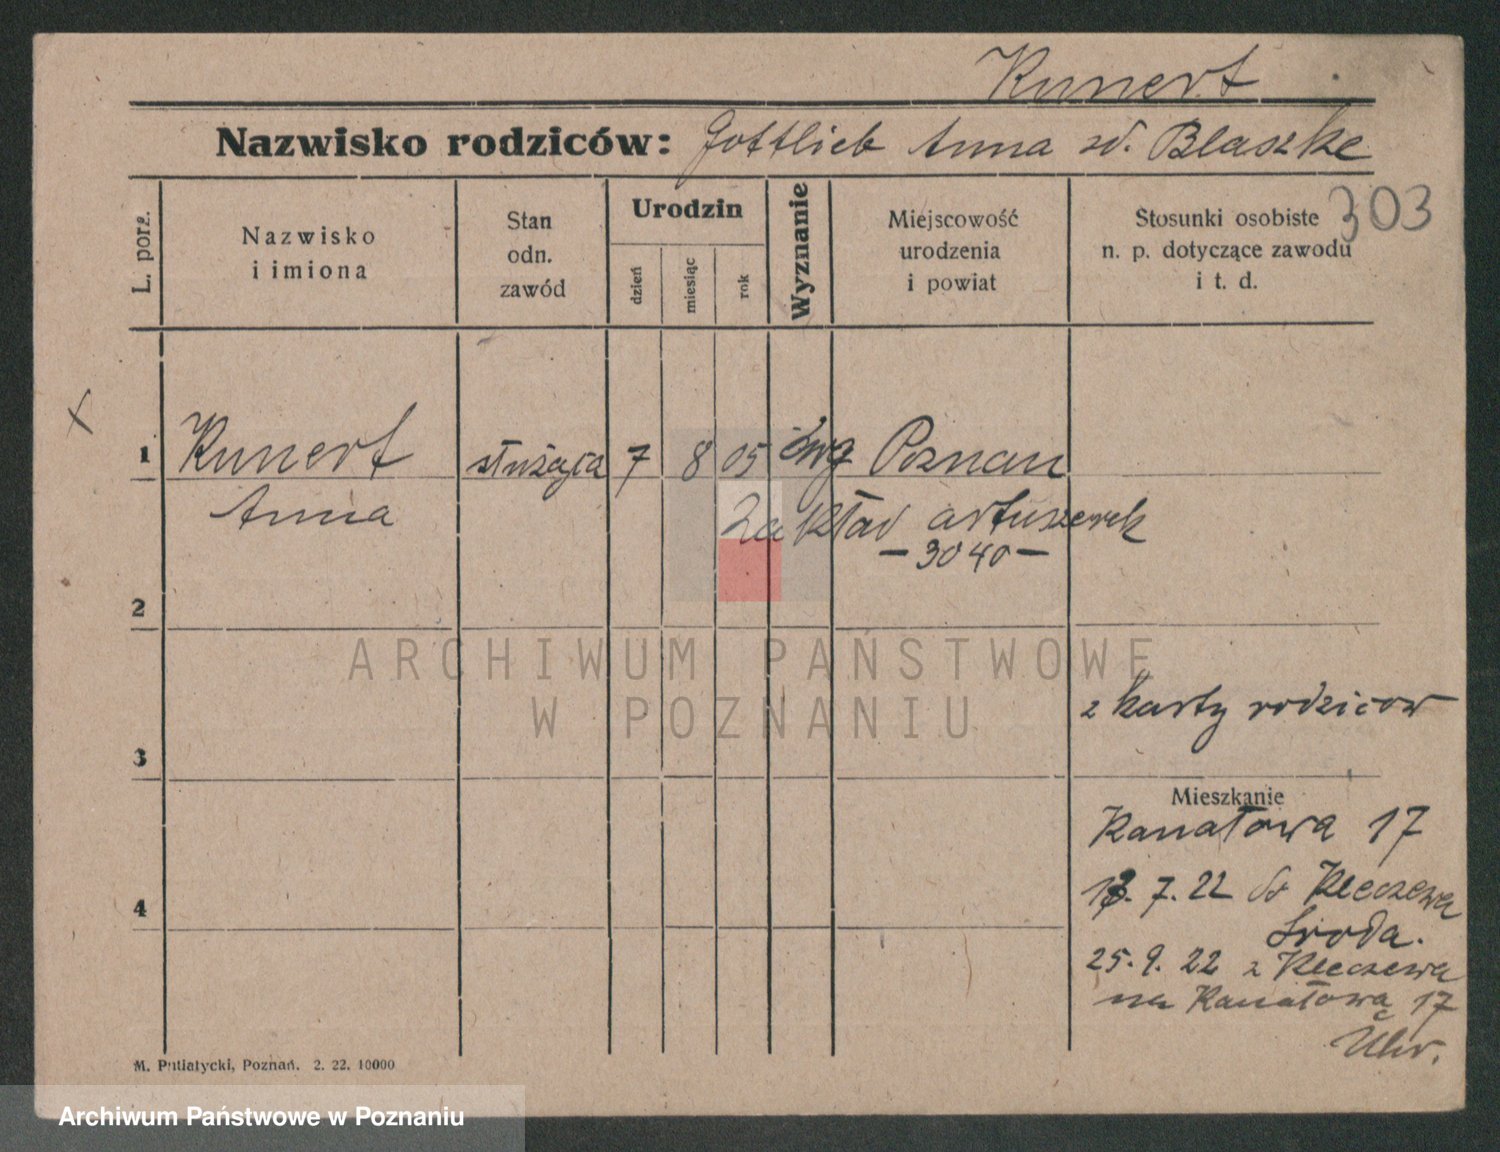 Kunert
Nazwisko rodziców: Gottlieb Anna zd. Blaszke
303
L. porz.
Nazwisko
i imiona
Stan
odn.
zawód
Urodzin
dzień
miesiąc
rok
Wyznanie
Miejscowość
urodzenia
i powiat
Stosunki osobiste
n. p. dotyczące zawodu
i t. d.
x
1 Kunert służąca 7 8 05 ewg Poznan
Anna
Zakład
— 3040 —
2
ARCHIWUM PAŃSTWOWE
W POZNANIU
z karty rodzicow
3
Mieszkanie
Kanałowa 17
7. 22 do Kleczewa
Sroda.
4
25. 9. 22 z Kleczewa
na Kanałową 17
M. Putiatycki, Poznań. 2. 22. 10000
Archiwum Państwowe w Poznaniu